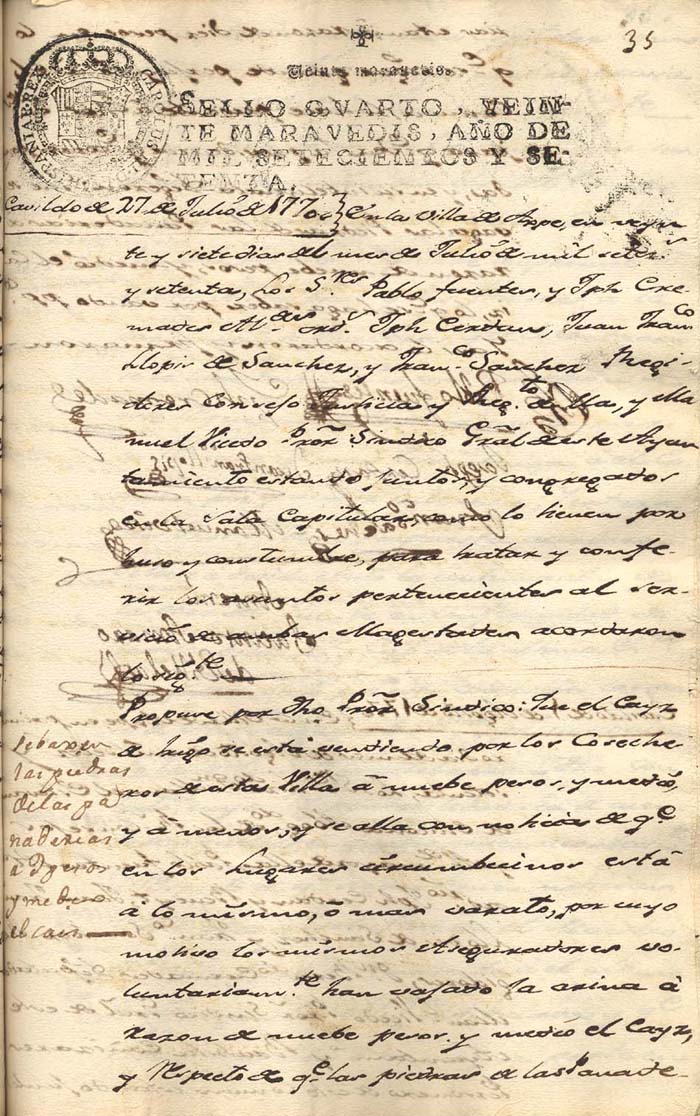 35
Veinte maravedis.
SELLO QVARTO, VEIN-
TE MARAVEDIS, AÑO DE
MIL SETECIENTOS Y SE-
TENTA.
Cavildo de 27 de Julio de 1770 En la Villa de Aspe, en veyn
te y siete dias del mes de Julio de mil setecs
y setenta, Los Srs Pablo fuentes, y Jph Cre
mades Aldes ords Jph Cerdan, Juan Franco
Llopis de Sanchez, y Franco Sanchez Regi
dores Consejo Justicia y Regto de ella, y Ma
nuel Vicedo Pror Sindico Gral de este Ayun
tamiento estando juntos, y congregados
en la Sala Capitular como lo tienen por
huso y constumbre, para tratar y confe
rir los asuntos pertenecientes al ser
vicio de ambas Magestades acordaron
lo sigte
Propuse por dho Pror Sindico: Que el Cayz
de trigo se está vendiendo por los Coseche
ros de esta Villa á nuebe pesos, y medio,
y á menos, y se alla con noticias de qe
en los Lugares circumbecinos está
á lo mismo, ó mas varato, por cuyo
motivo los mismos Aseguradores vo-
luntariamte han vajado la arina á
razon de nuebe pesos y medio el Cayz,
y Respecto de qe las piedras de las Panade-
se baxen
las piedras
de las pa
naderias
a 9 pesos
y medio
el cais
CAROLUS III D G HISPANIAR REX